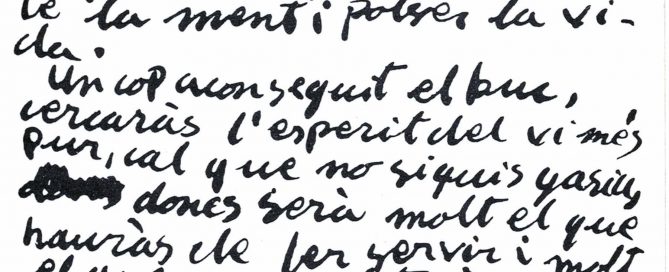 te la ment i potser la vi-
da.
Un cop aconseguit el buc,
cercaràs l'esperit del vi més
pur, cal que no siguis gasiu,
doncs serà molt el que
hauràs de fer servir i molt
el